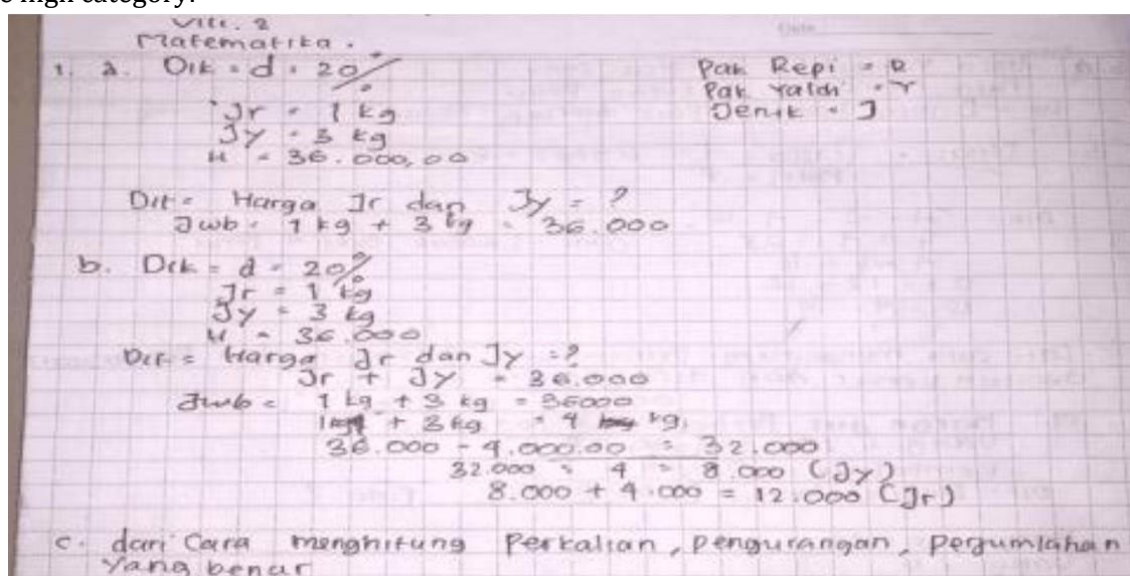 e high category.
VIII. 2
Matematika.
1. a. Dik = d = 20%
Pak Repi = R
Pak Yaldi = Y
Jeruk = J
Jr = 1 kg
Jy = 3 kg
H = 36.000,00
Dit = Harga Jr dan Jy = ?
Jwb = 1 kg + 3 kg = 36.000
b. Dik = d = 20%
Jr = 1 kg
Jy = 3 kg
H = 36.000
Dit = Harga Jr dan Jy = ?
Jr + Jy = 36.000
Jwb = 1 kg + 3 kg = 36000
+ 3 kg = 4 kg
36.000 - 4.000.00 = 32.000
32.000 : 4 = 8.000 (Jy)
8.000 + 4.000 = 12.000 (Jr)
c. dari Cara menghitung Perkalian, Pengurangan, Penjumlahan
yang benar